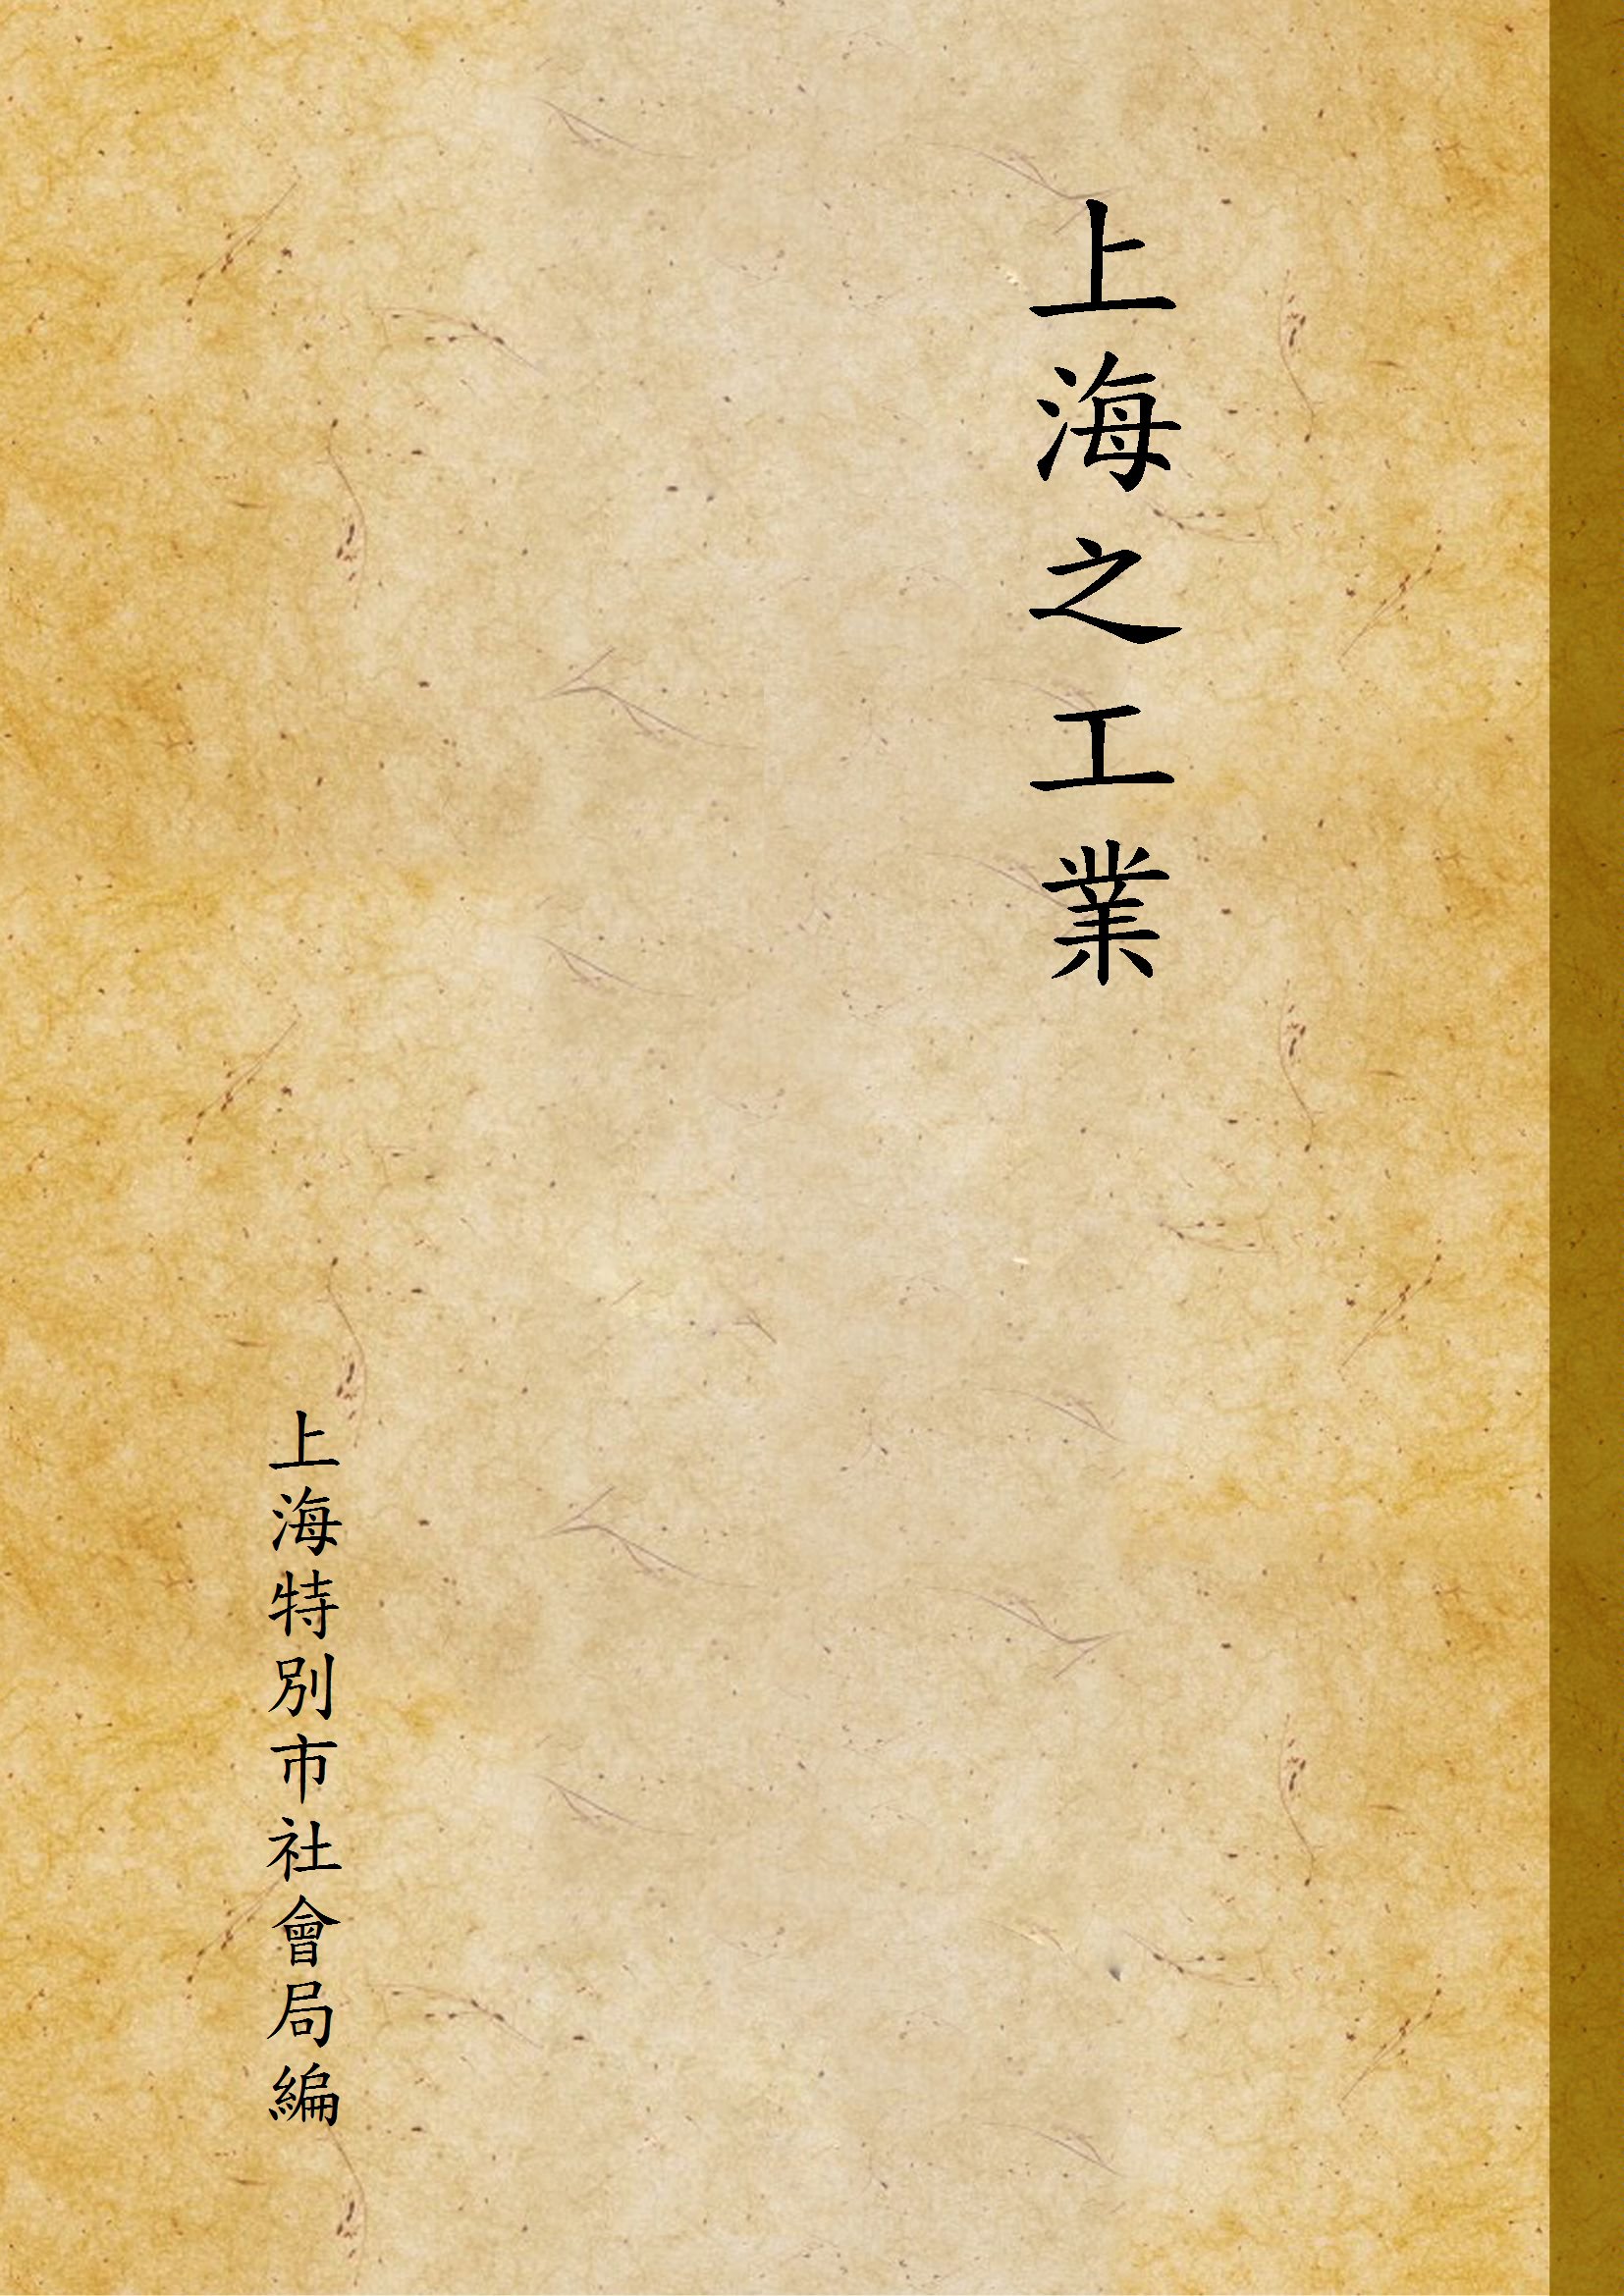 上海之工業
上海特別市社會局編